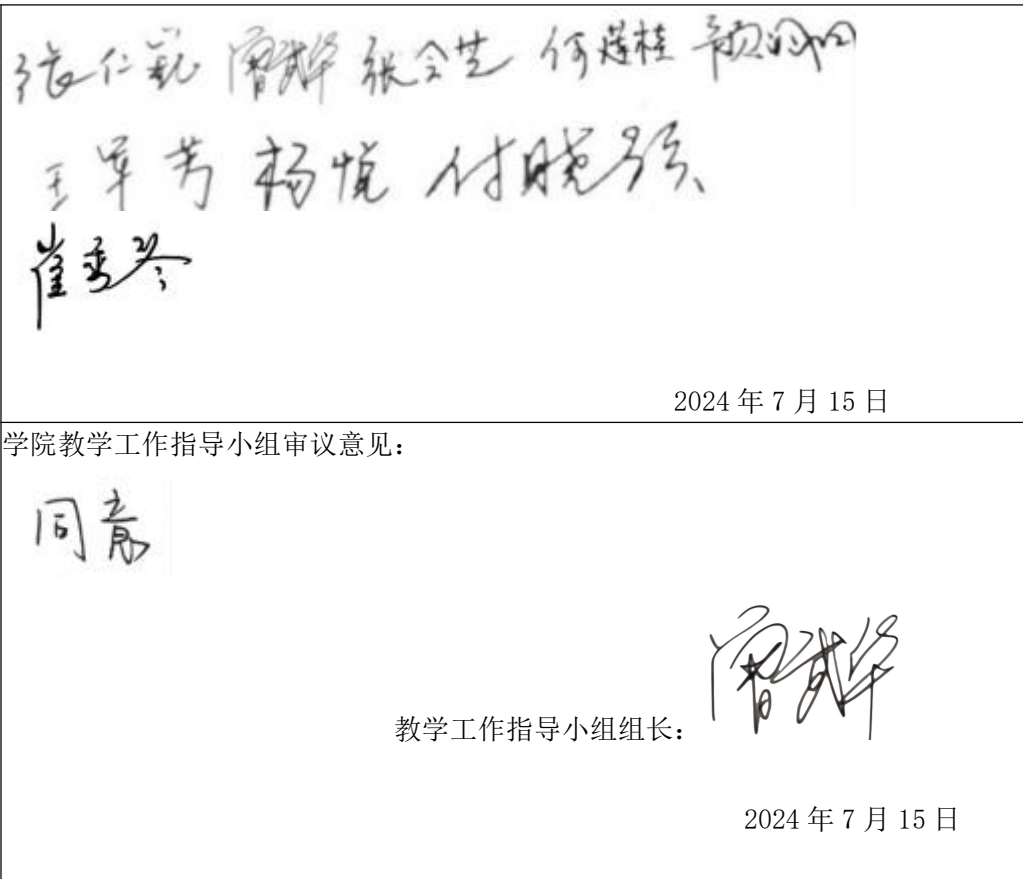 张仁 曾武华 张会芝 何莲桂
王军芳 杨悦 付晓强
崔秀琴
2024 年 7 月 15 日
学院教学工作指导小组审议意见：
同意
教学工作指导小组组长：曾武华
2024 年 7 月 15 日